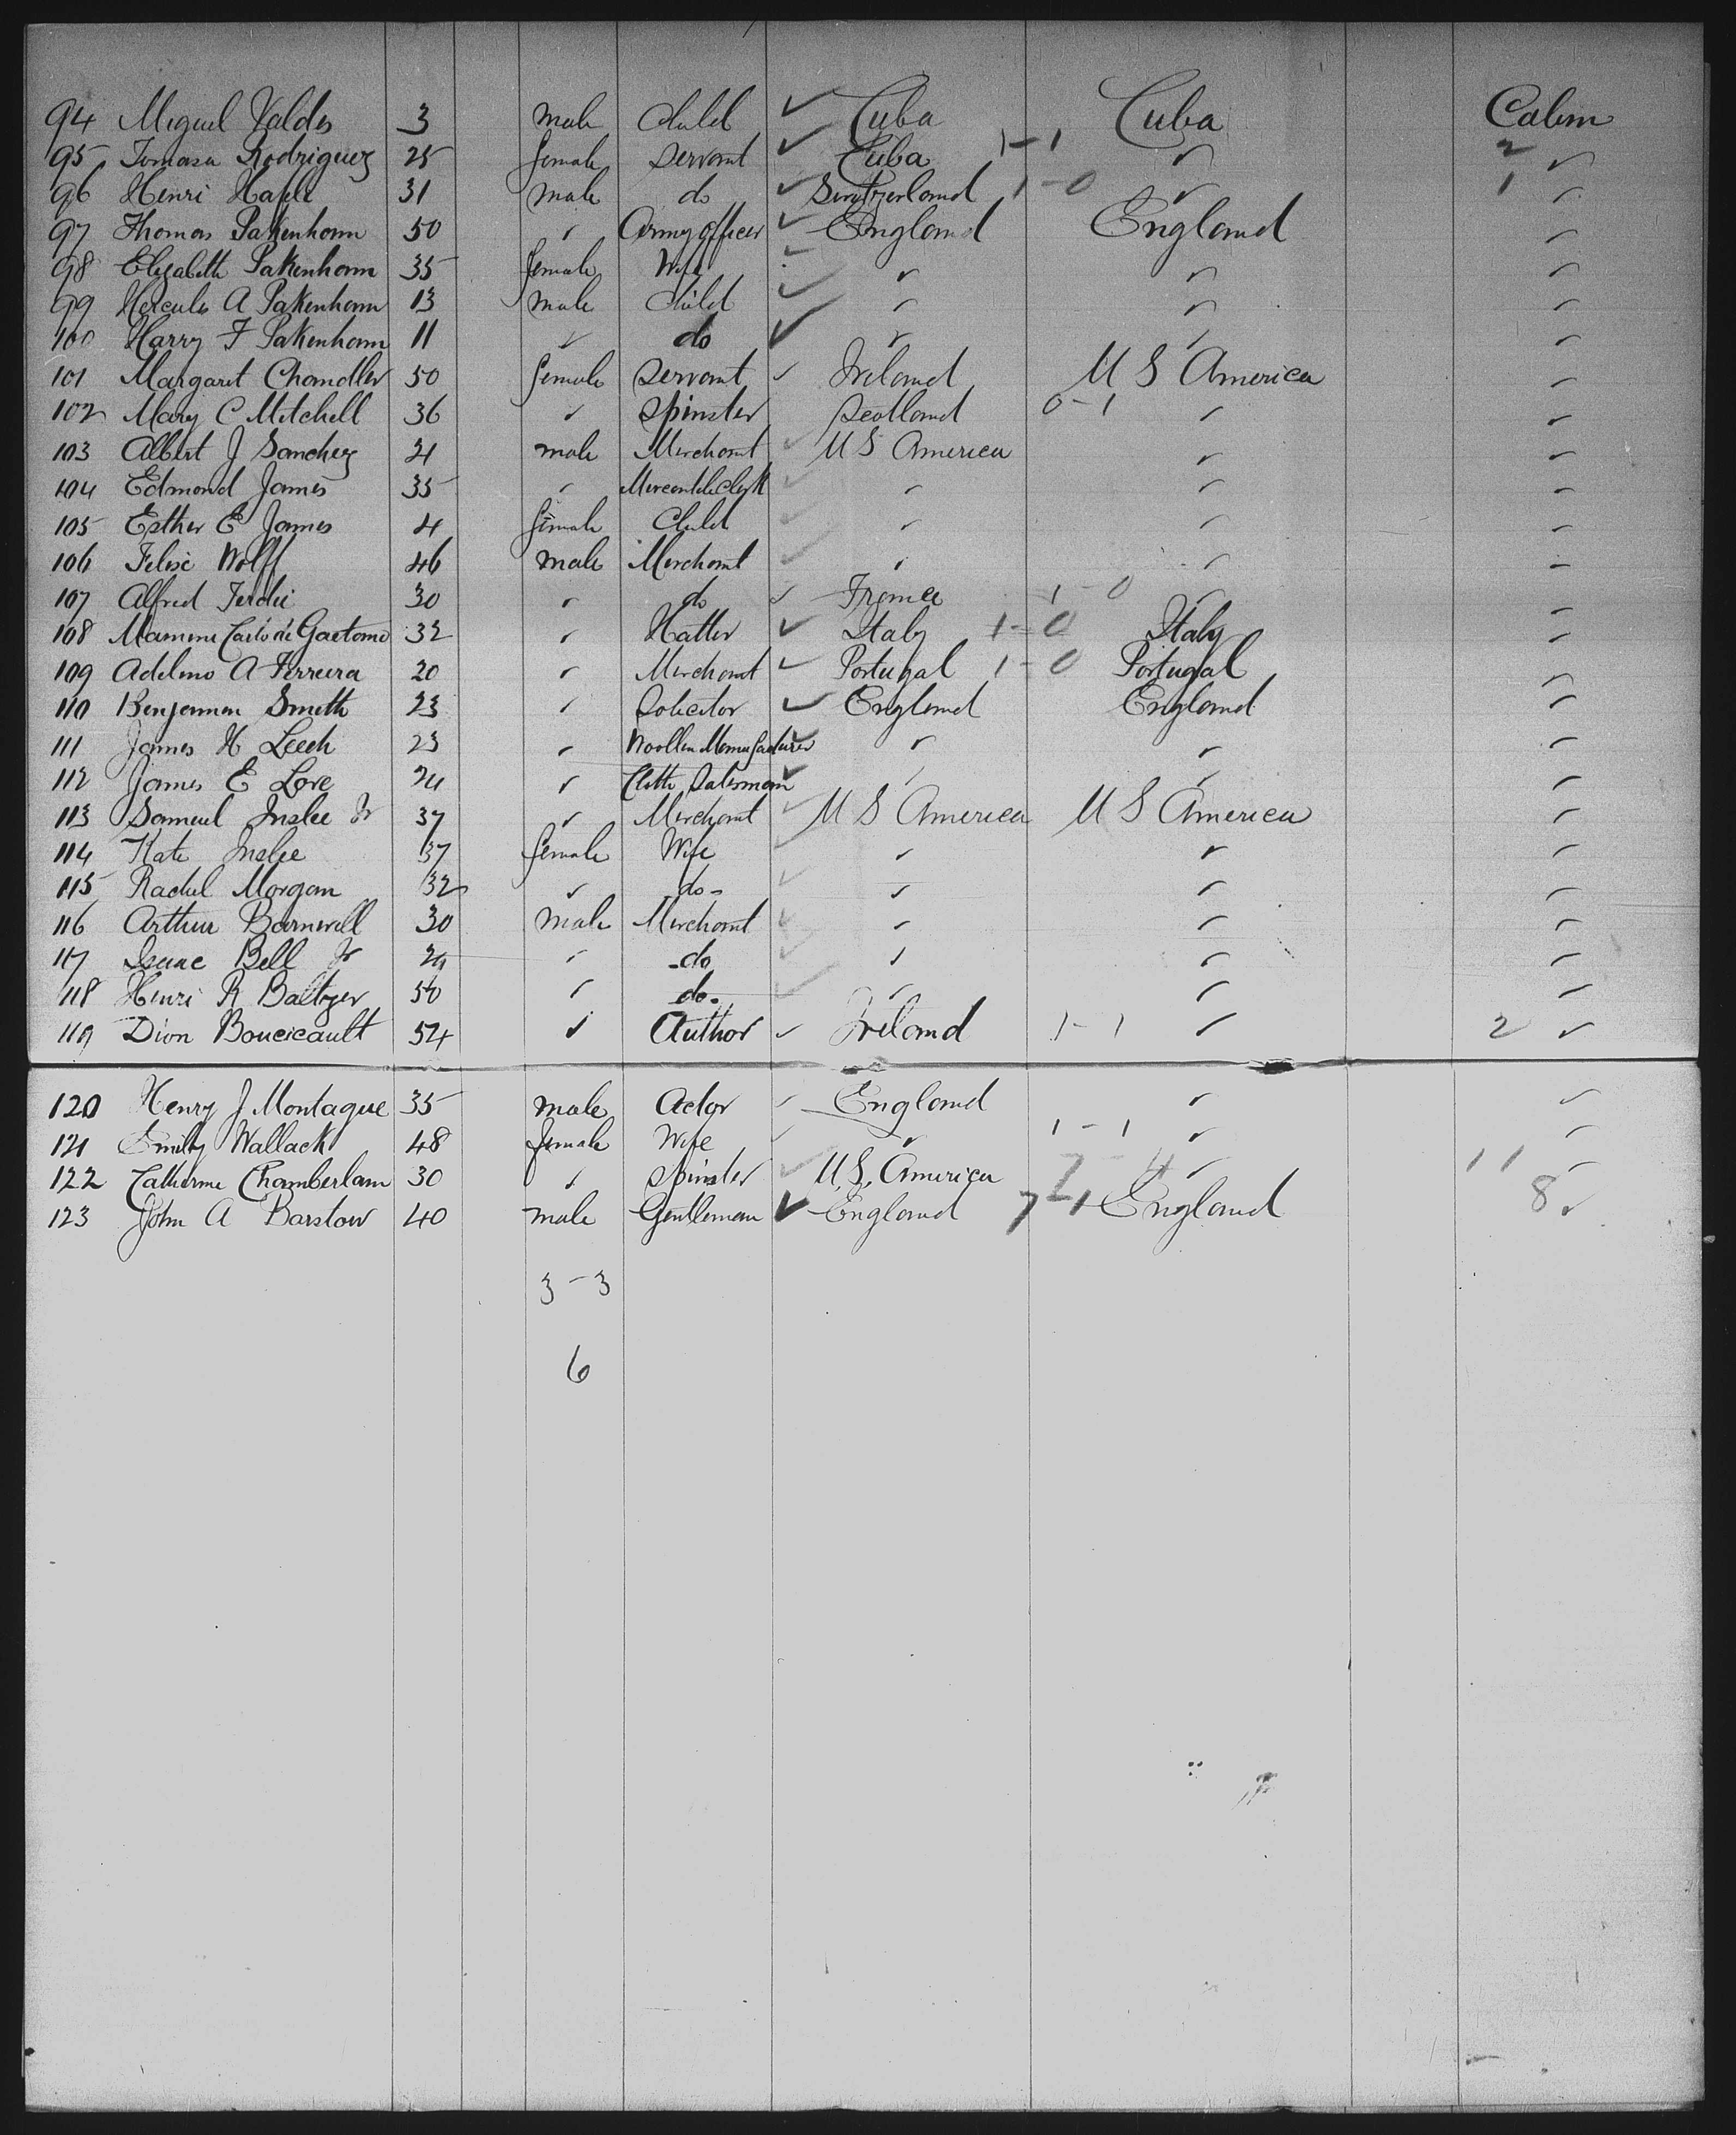 94 Miguel Valdes 3 male Child ✓ Cuba Cuba Cabin
95 Tomasa Rodriguez 25 female Servant ✓ Cuba 1-1 ✓ 2 ✓
96 Henri 31 male do ✓ Switzerland 1-0 ✓ 1 ✓
97 Thomas Pakenham 50 ✓ Army officer ✓ England England ✓
98 Elizabeth Pakenham 35 female Wife ✓ ✓ ✓ ✓
99 Hercules A Pakenham 13 male Child ✓ ✓ ✓ ✓
100 Harry F Pakenham 11 ✓ do ✓ ✓ ✓ ✓
101 Margaret Chandler 50 female Servant ✓ Ireland U S America ✓
102 Mary C Mitchell 36 ✓ Spinster Scotland 0-1 ✓ ✓
103 Albert J Sanchez 21 male Merchant ✓ U S America ✓ ✓
104 Edmond James 35 ✓ Mercantile Clerk ✓ ✓ ✓ ✓
105 Esther E James 4 female Child ✓ ✓ ✓ ✓
106 Wolff 46 male Merchant ✓ ✓ ✓ ✓
107 Alfred 30 ✓ do ✓ France 1-0 ✓
108 Gaetano 32 ✓ Hatter ✓ Italy 1-0 Italy ✓
109 Adelino A Ferreira 20 ✓ Merchant ✓ Portugal 1-0 Portugal ✓
110 Benjamin Smith 23 ✓ Solicitor ✓ England England ✓
111 James H Leech 23 ✓ Woollen Manufacturer ✓ ✓ ✓ ✓
112 James E Love 24 ✓ Cloth Salesman ✓ ✓ ✓ ✓
113 Samuel Inslee Jr 37 ✓ Merchant ✓ U S America U S America ✓
114 Kate Inslee 37 female Wife ✓ ✓ ✓ ✓
115 Rachel Morgan 32 ✓ do- ✓ ✓ ✓ ✓
116 Arthur Barnwell 30 male Merchant ✓ ✓ ✓ ✓
117 Isaac Bell Jr ✓ -do ✓ ✓ ✓ ✓
118 Henri R Baltzer 50 ✓ do. ✓ ✓ ✓ ✓
119 Dion Boucicault 54 ✓ Author ✓ Ireland 1-1 ✓ 2 ✓
120 Henry J Montague 35 male Actor ✓ England ✓ ✓
121 Emily Wallack 48 female Wife ✓ ✓ 1-1 ✓ ✓
122 Catherine Chamberlain 30 ✓ Spinster ✓ U.S. America 7-4 ✓ 11 ✓
123 John A Barstow 40 male Gentleman ✓ England 7-1 England 8 ✓
3-3
6